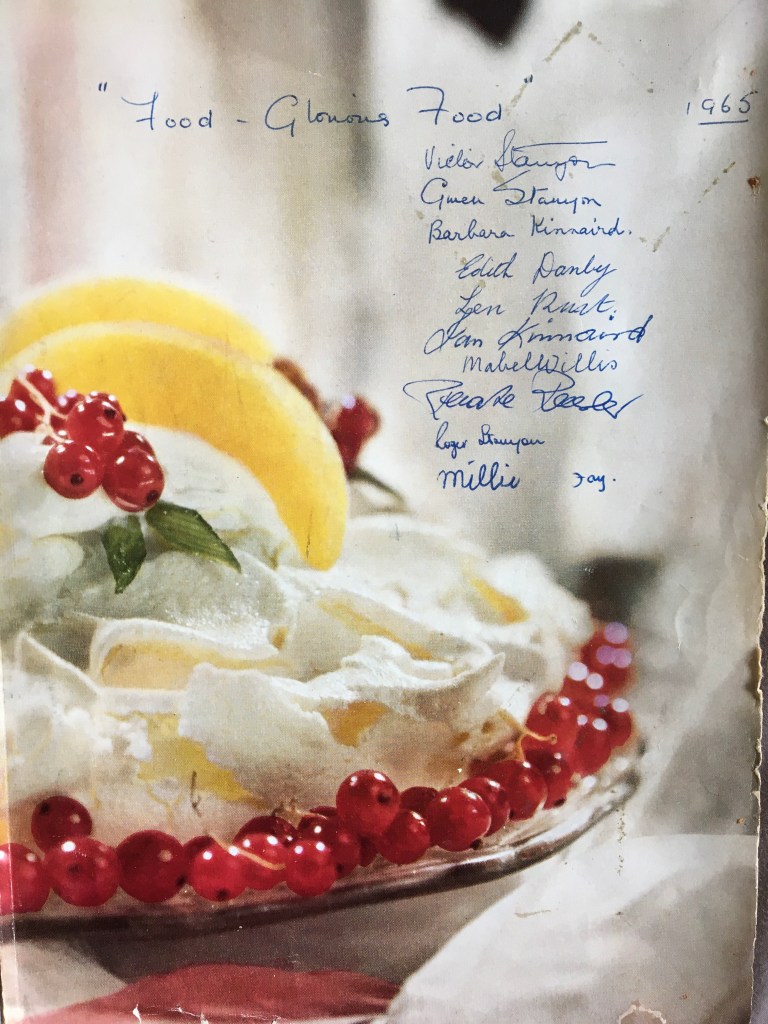 "Food - Glorious Food" 1965
Victor Stanyon
Gwen Stanyon
Barbara Kinnaird.
Edith Danby
Len Rust.
Ian Kinnaird
Mabel Willis
Renate
Roger Stanyon
Millie Jay.